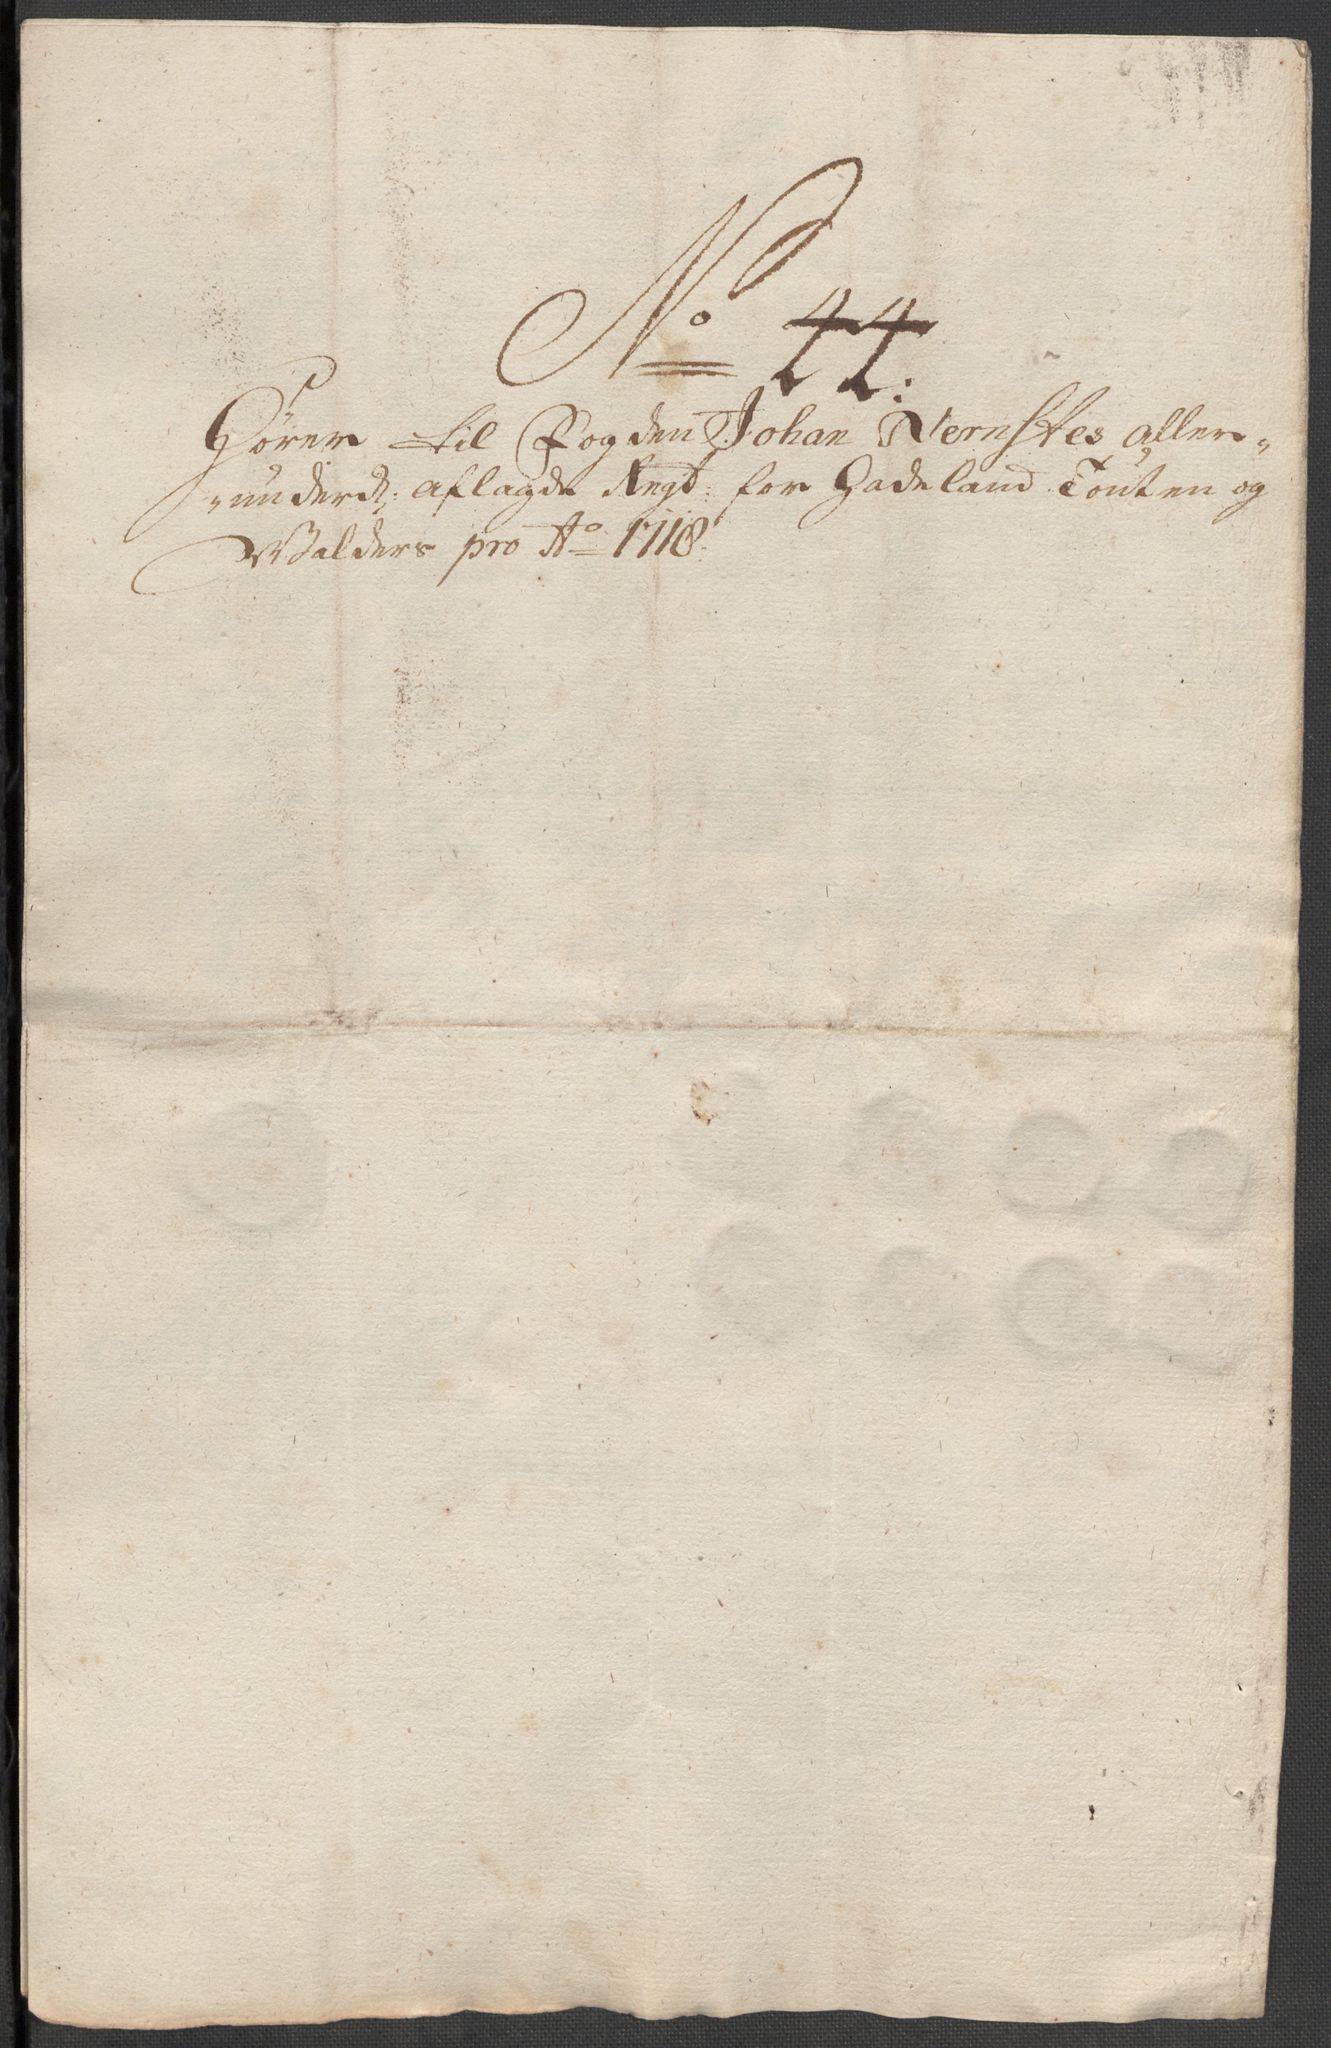 No 44:
Hörer til Fogden Johan Nernstes aller-
underd: aflagde Regt: for Hadeland Touten og
Walders pro Ao 1718.